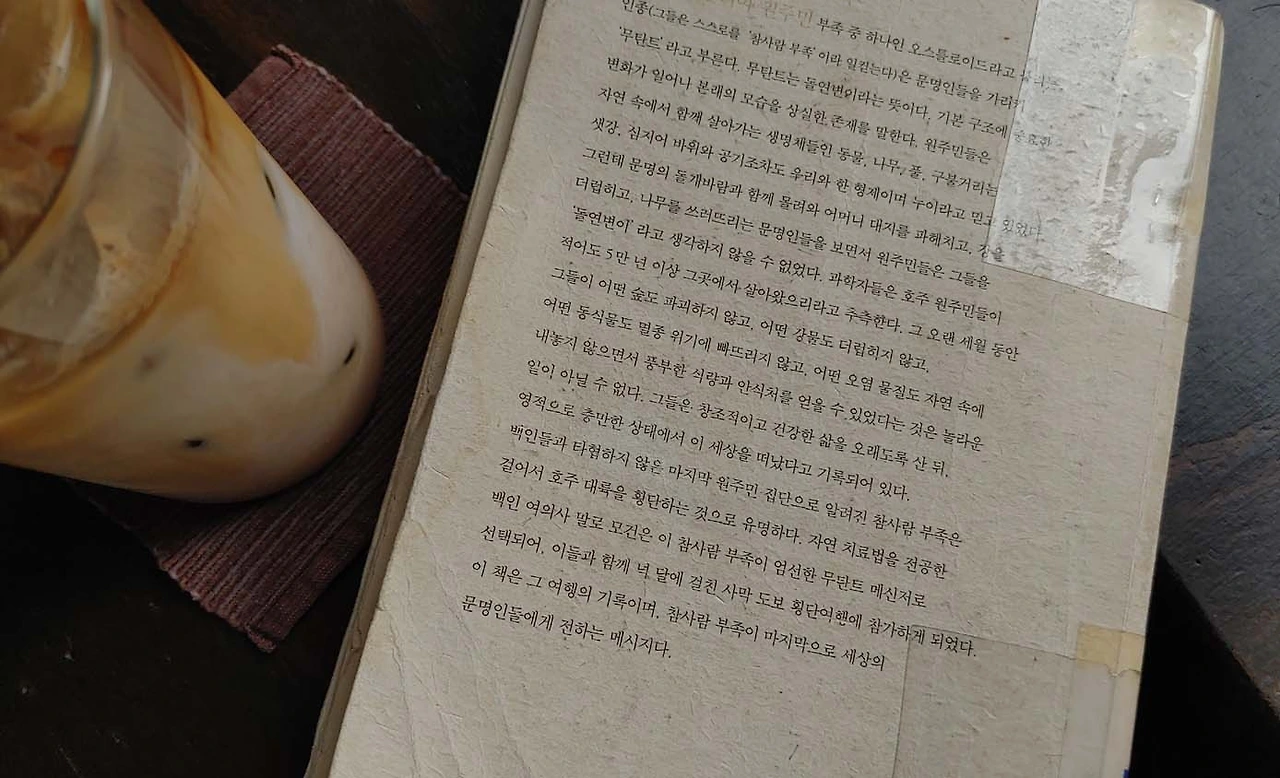 원주민 부족 중 하나인 오스틀로이드라고
인종(그들은 스스로를 '참사람 부족'이라 일컫는다)은 문명인들을 가리켜
'무탄트'라고 부른다. 무탄트는 돌연변이라는 뜻이다. 기본 구조에 중요한
변화가 일어나 본래의 모습을 상실한 존재를 말한다. 원주민들은
자연 속에서 함께 살아가는 생명체들인 동물, 나무, 풀, 구불거리는
샛강, 심지어 바위와 공기조차도 우리와 한 형제이며 누이라고 믿고 있었다.
그런데 문명의 돌개바람과 함께 몰려와 어머니 대지를 파헤치고, 강을
더럽히고, 나무를 쓰러뜨리는 문명인들을 보면서 원주민들은 그들을
'돌연변이'라고 생각하지 않을 수 없었다. 과학자들은 호주 원주민들이
적어도 5만 년 이상 그곳에서 살아왔으리라고 추측한다. 그 오랜 세월 동안
그들이 어떤 숲도 파괴하지 않고, 어떤 강물도 더럽히지 않고,
어떤 동식물도 멸종 위기에 빠뜨리지 않고, 어떤 오염 물질도 자연 속에
내놓지 않으면서 풍부한 식량과 안식처를 얻을 수 있었다는 것은 놀라운
일이 아닐 수 없다. 그들은 창조적이고 건강한 삶을 오래도록 산 뒤,
영적으로 충만한 상태에서 이 세상을 떠났다고 기록되어 있다.
백인들과 타협하지 않은 마지막 원주민 집단으로 알려진 참사람 부족은
걸어서 호주 대륙을 횡단하는 것으로 유명하다. 자연 치료법을 전공한
백인 여의사 말로 모건은 이 참사람 부족이 엄선한 무탄트 메신저로
선택되어, 이들과 함께 넉 달에 걸친 사막 도보 횡단여행에 참가하게 되었다.
이 책은 그 여행의 기록이며, 참사람 부족이 마지막으로 세상의
문명인들에게 전하는 메시지다.